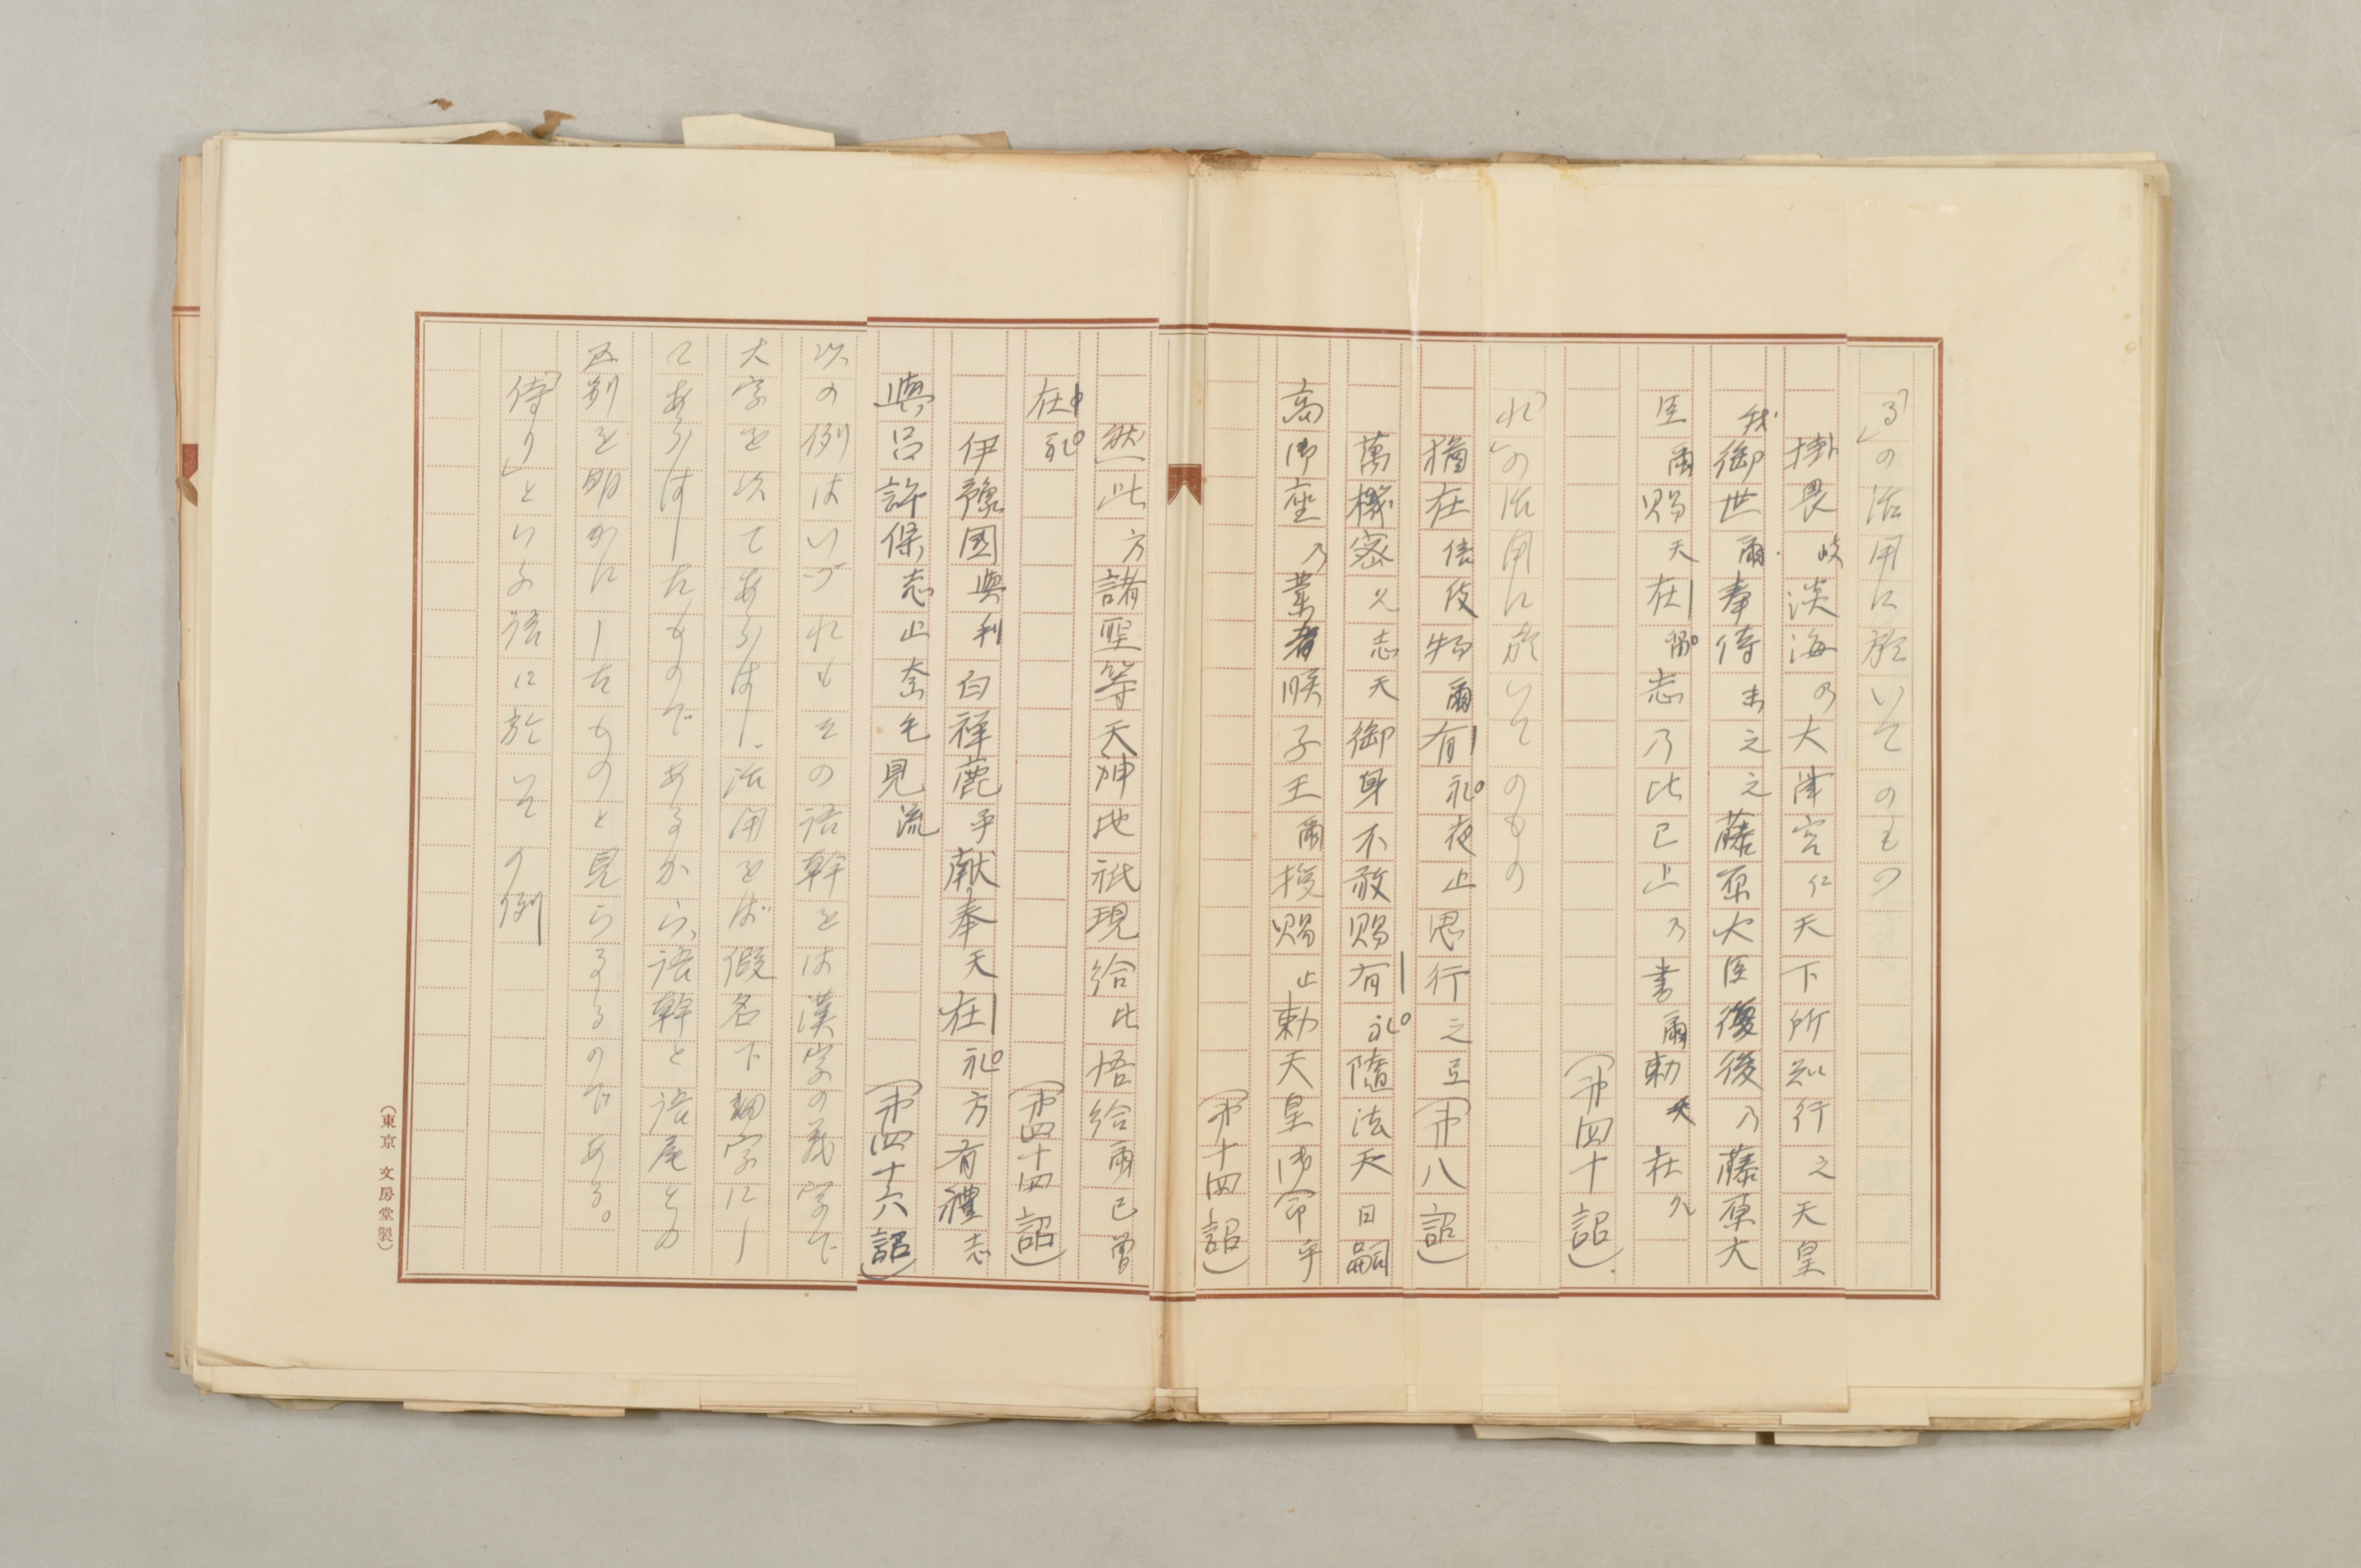 「る」の活用に於いてのもの
掛畏岐淡海乃大津宮仁天下所知行之天皇
我御世爾奉侍末之之藤原大臣復後乃藤原大
臣爾賜天在留志乃比己止乃書爾勅天在久
（第四十詔）
「れ」の活用に於いてのもの
猶在倍伎物爾有礼夜止思行之豆（第八詔）
萬機密久志天御身不敢賜有礼隨法天日嗣
高御座乃業者朕子王爾授賜止勅天皇御命乎
（第十四詔）
然此方諸聖等天神地祇現給比悟給爾己曾
在礼（第四十四詔）
伊豫國與利白祥鹿乎献奉天在礼方有禮志
與呂許保志止奈毛見流（第四十六詔）
以の例はいづれもその語幹をは漢字の義字で
大字を以てあらはし、活用をば假名下細字にし
てあらはしたものであるから、語幹と語尾との
区別を明かにしたものと見らるるのである。
「侍り」といふ語に於いての例
（東京 文房堂製）